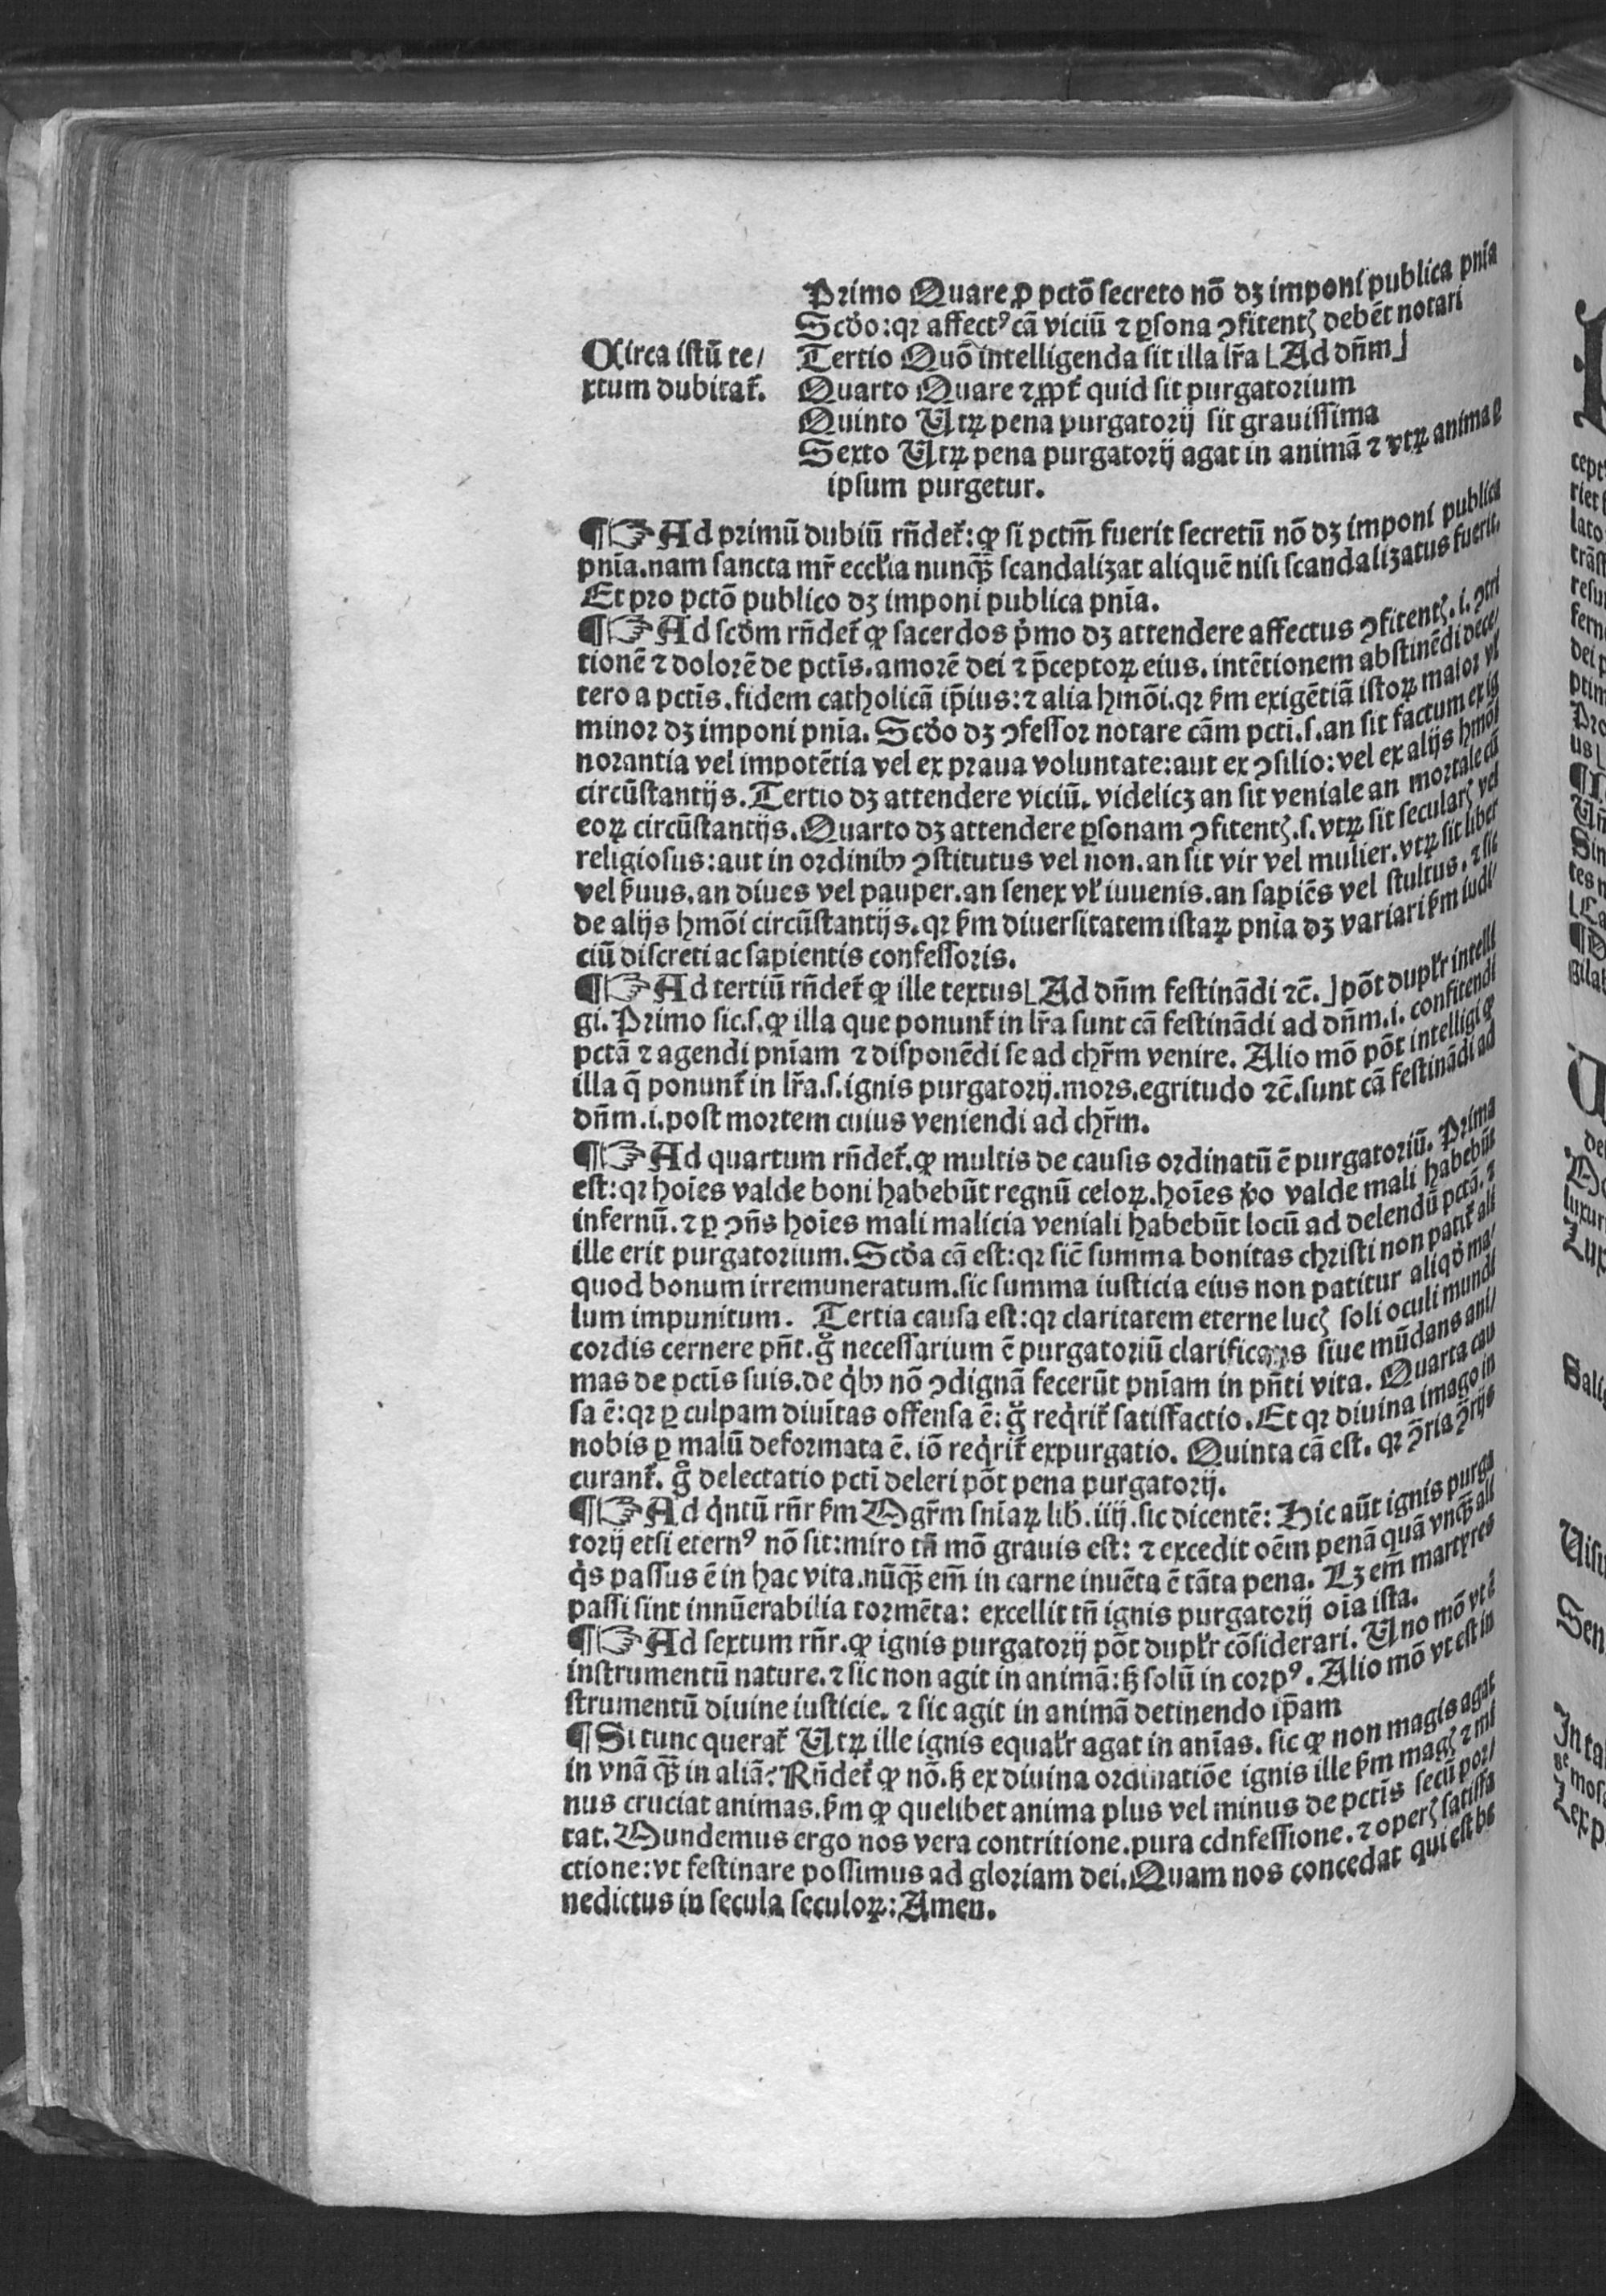 Primo Quare ꝓ pctō secreto nō dꝫ imponi publica pnīa
Scdo:qꝛ affectꝰ cā viciū ⁊ ꝑsona ꝯfitentꝭ debēt notari
Circa istū te/
xtum dubitat᷑.
Tertio Quō intelligenda sit illa lr̄a ⌊Ad dn̄m⌋
Quarto Quare ⁊ ꝓpt᷑ quid sit purgatorium
Quinto Utꝝ pena purgatorij sit grauissima
Sexto Utꝝ pena purgatorij agat in animā ⁊ vtꝝ anima ꝑ
ipsum purgetur.
¶☞ Ad primū dubiū rn̄det᷑:ꝙ si pctm̄ fuerit secretū nō dꝫ imponi publica
pnīa.nam sancta mr̄ eccłia nunqꝫ̄ scandalizat aliquē nisi scandalizatus fuerit.
Et pro pctō publico dꝫ imponi publica pnīa.
¶☞ Ad scdm rn̄det᷑ ꝙ sacerdos pͥmo dꝫ attendere affectus ꝯfitentꝭ.i.ꝯtri
tionē ⁊ dolorē de pctīs.amorē dei ⁊ p̄ceptoꝝ eius.intētionem abstinēdi dece/
tero a pctīs.fidem catholicā ip̄ius:⁊ alia hmōi.qꝛ ẜm exigētiā istoꝝ maior vł
minor dꝫ imponi pnīa. Scdo dꝫ ꝯfessor notare cām pcti.s.an sit factum ex ig
norantia vel impotētia vel ex praua voluntate:aut ex ꝯsilio:vel ex alijs hmōi
circūstantijs.Tertio dꝫ attendere viciū.videlicꝫ an sit veniale an mortale cū
eoꝝ circūstantijs.Quarto dꝫ attendere ꝑsonam ꝯfitentꝭ.s.vtꝝ sit secularꝭ vel
religiosus:aut in ordinibꝰ ꝯstitutus vel non.an sit vir vel mulier.vtꝝ sit liber
vel ẜuus.an diues vel pauper.an senex vł iuuenis.an sapiēs vel stultus.⁊ sic
de alijs hmōi circūstantijs.qꝛ ẜm diuersitatem istaꝝ pnīa dꝫ variari ẜm iudi/
ciū discreti ac sapientis confessoris.
¶☞ Ad tertiū rn̄det᷑ ꝙ ille textus⌊Ad dn̄m festinādi ⁊c̄.⌋pōt dupłr intelli
gi.Primo sic.s.ꝙ illa que ponunt᷑ in lr̄a sunt cā festinādi ad dn̄m.i.confitendi
pctā ⁊ agendi pnīam ⁊ disponēdi se ad chr̄m venire. Alio mō pōt intelligi ꝙ
illa q̄ ponunt᷑ in lr̄a.s.ignis purgatorij.mors.egritudo ⁊c̄.sunt cā festinādi ad
dn̄m.i.post mortem cuius veniendi ad chr̄m.
¶☞ Ad quartum rn̄det᷑.ꝙ multis de causis ordinatū ē purgatoriū. Prima
est:qꝛ hoīes valde boni habebūt regnū celoꝝ.hoīes ꝟo valde mali habebūt
infernū.⁊ ꝑ ꝯn̄s hoīes mali malicia veniali habebūt locū ad delendū pctā.⁊
ille erit purgatorium.Scda cā est:qꝛ sic̄ summa bonitas christi non patit᷑ ali
quod bonum irremuneratum.sic summa iusticia eius non patitur aliqͦd ma/
lum impunitum. Tertia causa est:qꝛ claritatem eterne lucꝭ soli oculi mundi
cordis cernere pn̄t.gͦ necessarium ē purgatoriū clarificans siue mūdans ani/
mas de pctīs suis.de qͥbꝰ nō ꝯdignā fecerūt pnīam in pn̄ti vita. Quarta cau
sa ē:qꝛ ꝑ culpam diuītas offensa ē:gͦ reqͥrit᷑ satisfactio.Et qꝛ diuina imago in
nobis ꝑ malū deformata ē.iō reqͥrit᷑ expurgatio. Quinta cā est.qꝛ ꝯ̄ria ꝯ̄rijs
curant᷑.gͦ delectatio pcti deleri pōt pena purgatorij.
¶☞ Ad qͥntū rn̄r ẜm Mgr̄m sniaꝝ lib.iiij.sic dicentē: Hic aūt ignis purga
torij etsi eternꝰ nō sit:miro tn̄ mō grauis est: ⁊ excedit oēm penā quā vnqꝫ̄ ali
qͥs passus ē in hac vita.nūqꝫ̄ em̄ in carne inuēta ē tāta pena. Lꝫ em̄ martyres
passi sint innūerabilia tormēta: excellit tn̄ ignis purgatorij oīa ista.
¶☞ Ad sextum rn̄r.ꝙ ignis purgatorij pōt dupłr cōsiderari. Uno mō vt ē
instrumentū nature.⁊ sic non agit in animā:ꝫ solū in corpꝰ. Alio mō vt est in
strumentū diuine iusticie.⁊ sic agit in animā detinendo ip̄am
¶Si tunc querat᷑ Utꝝ ille ignis equałr agat in anīas.sic ꝙ non magis agat
in vnā qꝫ̄ in aliā? Rn̄det᷑ ꝙ nō.ꝫ ex diuina ordinatiōe ignis ille ẜm magꝭ ⁊ mi
nus cruciat animas.ẜm ꝙ quelibet anima plus vel minus de pctīs secū por/
tat.Mundemus ergo nos vera contritione.pura cōnfessione.⁊ operꝭ satisfa
ctione:vt festinare possimus ad gloriam dei.Quam nos concedat qui est be
nedictus in secula seculoꝝ:Amen.